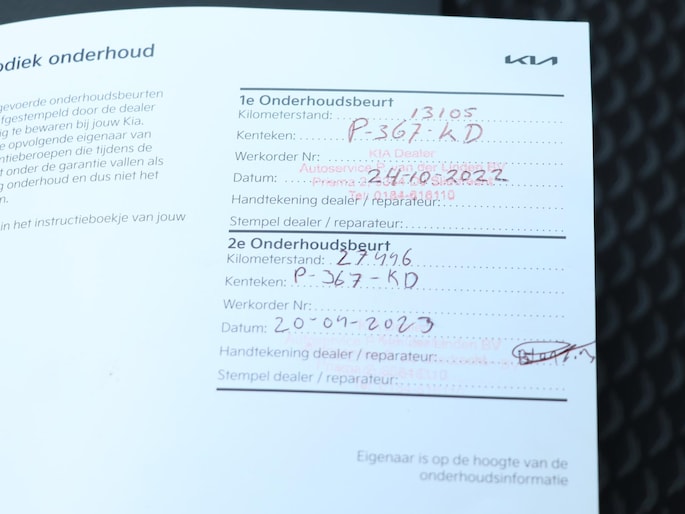 odiek onderhoud
gevoerde onderhoudsbeurten
fgestempeld door de dealer
ig te bewaren bij jouw Kia.
e opvolgende eigenaar van
ntieberoepen die tijdens de
t onder de garantie vallen als
g onderhoud en dus niet het
n.
in het instructieboekje van jouw
KIA
1e Onderhoudsbeurt
Kilometerstand: 13105
Kenteken: P-367-KD
Werkorder Nr:
KIA Dealer
Autoservice P. van der Linden BV
Datum: 24-10-2022
Tel. 0184-616110
Handtekening dealer / reparateur:
Stempel dealer / reparateur:
2e Onderhoudsbeurt
Kilometerstand: 27446
Kenteken: P-367-KD
Werkorder Nr:
Datum: 20-04-2023
Handtekening dealer / reparateur:
Stempel dealer / reparateur:
Eigenaar is op de hoogte van de
onderhoudsinformatie